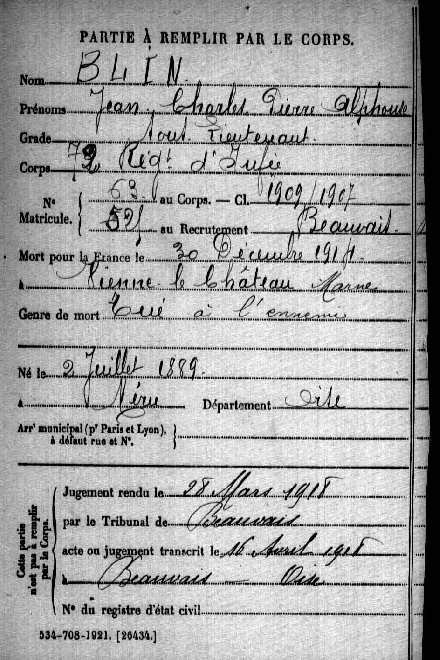 PARTIE À REMPLIR PAR LE CORPS.
Nom BLIN
Prénoms Jean Charles Pierre Alphonse
Grade Sous Lieutenant
Corps 72 Régt d'Infie
N° Matricule. { 63 au Corps. — Cl. 1909/1907
521 au Recrutement Beauvais
Mort pour la France le 30 Décembre 1914
à Vienne le Château Marne
Genre de mort Tué à l'ennemi
Né le 2 Juillet 1889
à Méru Département Oise
Arrt municipal (pr Paris et Lyon),
à défaut rue et N°.
Cette partie n'est pas à remplir par le Corps.
Jugement rendu le 28 Mars 1918
par le Tribunal de Beauvais
acte ou jugement transcrit le 16 Avril 1918
à Beauvais — Oise
N° du registre d'état civil
534-708-1921. [26434.]